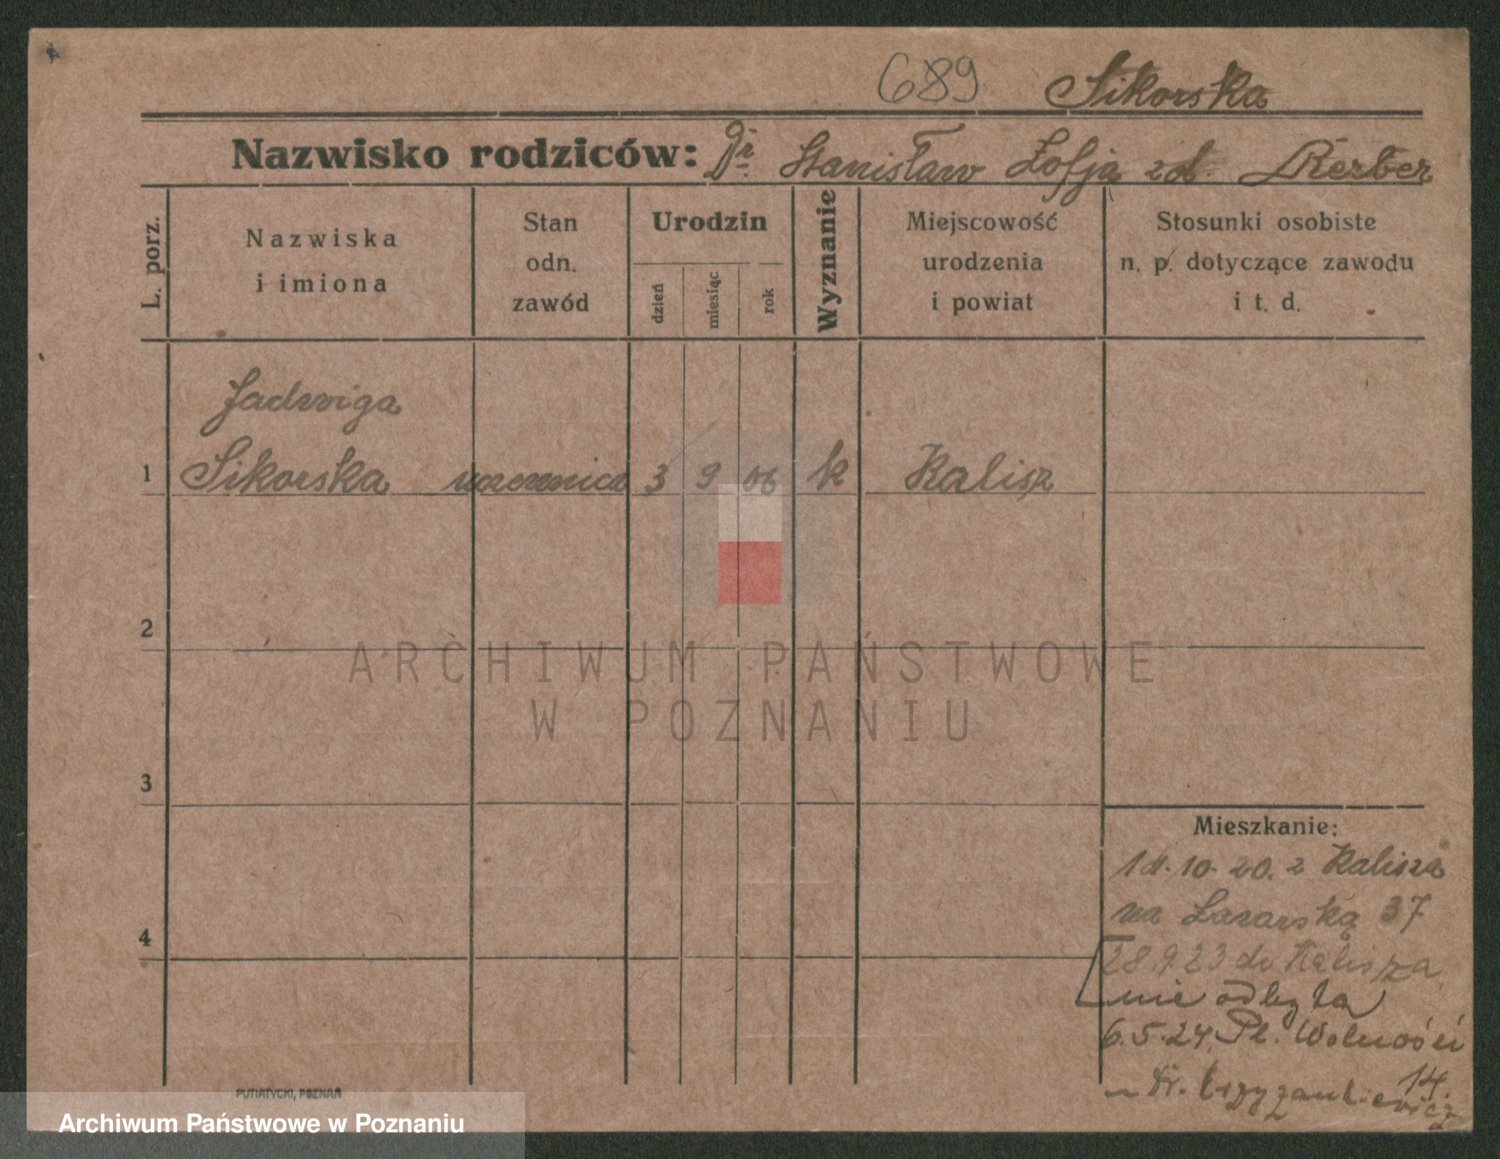 689 Sikorska
Nazwisko rodziców: Dr. Stanisław Zofja zd. Kerber
L. porz.
Nazwiska
i imiona
Stan
odn.
zawód
Urodzin
dzień
miesiąc
rok
Wyznanie
Miejscowość
urodzenia
i powiat
Stosunki osobiste
n. p. dotyczące zawodu
i t. d.
Jadwiga
1 Sikorska uczenica 3 9 06 k Kalisz
2
3
4
ARCHIWUM PAŃSTWOWE
W POZNANIU
Mieszkanie:
14.10.20. z Kalisza
na Łazarską 37
28.9.23 do Kalisza
nie odbyta
6.5.24. Pl. Wolności
14.
Dr. Krzyżankiewicz
PUTIATYCKI, POZNAŃ
Archiwum Państwowe w Poznaniu